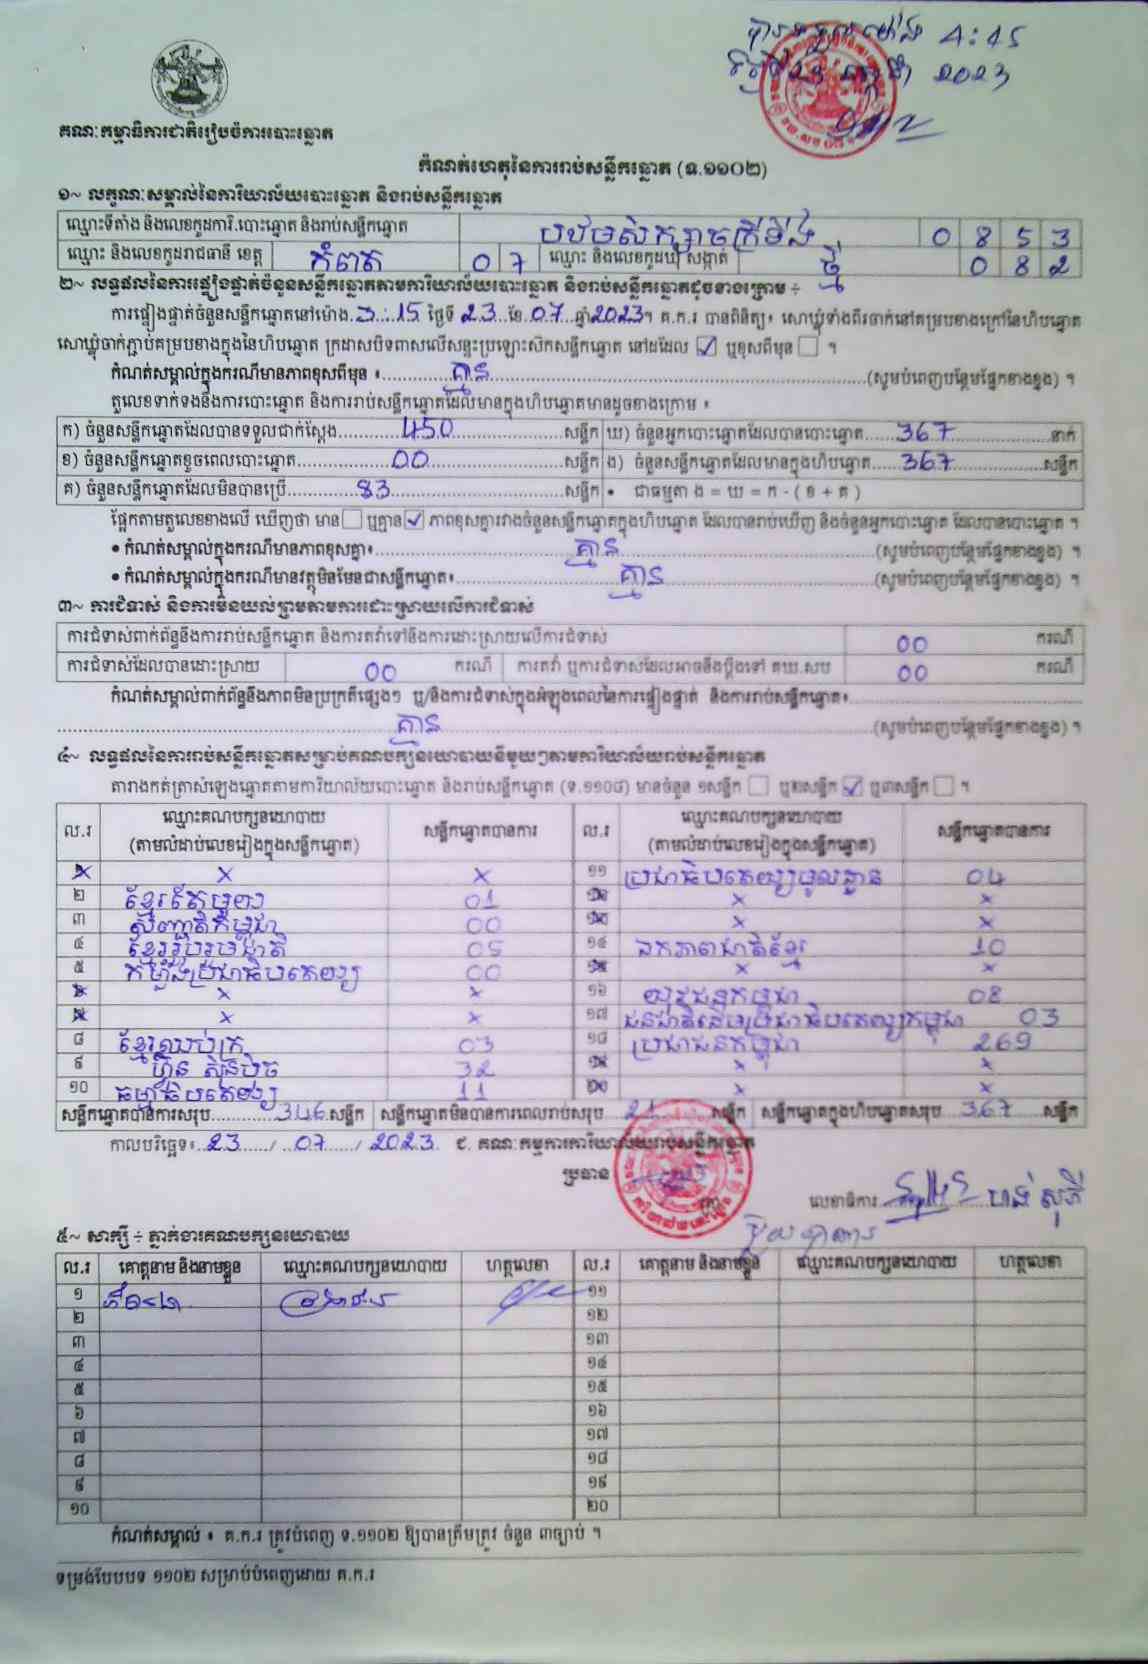 4:45
2023
គណៈកម្មាធិការជាតិរៀបចំការបោះឆ្នោត
កំណត់ហេតុនៃការរាប់សន្លឹកឆ្នោត (ទ.១១០២)
១~ លក្ខណៈសម្គាល់នៃការិយាល័យបោះឆ្នោត និងរាប់សន្លឹកឆ្នោត
ឈ្មោះទីតាំង និងលេខកូដការិ.បោះឆ្នោត និងរាប់សន្លឹកឆ្នោត 0 8 5 3
ឈ្មោះ និងលេខកូដរាជធានី ខេត្ត កំពត 0 7 ឈ្មោះ និងលេខកូដឃុំ សង្កាត់ ថ្មី 0 8 2
២~ លទ្ធផលនៃការផ្ទៀងផ្ទាត់ចំនួនសន្លឹកឆ្នោតតាមការិយាល័យបោះឆ្នោត និងរាប់សន្លឹកឆ្នោតដូចខាងក្រោម ÷
ការផ្ទៀងផ្ទាត់ចំនួនសន្លឹកឆ្នោតនៅម៉ោង 3:15 ថ្ងៃទី 23 ខែ 07 ឆ្នាំ 2023។ គ.ក.រ បានពិនិត្យ៖ សោឃ្លុំទាំងពីរចាក់នៅគម្របខាងក្រៅនៃហិបឆ្នោត
សោឃ្លុំចាក់ភ្ជាប់គម្របខាងក្នុងនៃហិបឆ្នោត ក្រដាសបិទពាសលើសន្ទះប្រឡោះសិកសន្លឹកឆ្នោត នៅដដែល ☑ ឬខុសពីមុន ☐ ។
កំណត់សម្គាល់ក្នុងករណីមានភាពខុសពីមុន ៖ គ្មាន (សូមបំពេញបន្ថែមផ្នែកខាងខ្នង) ។
តួលេខទាក់ទងនឹងការបោះឆ្នោត និងការរាប់សន្លឹកឆ្នោតដែលមានក្នុងហិបឆ្នោតមានដូចខាងក្រោម ៖
ក) ចំនួនសន្លឹកឆ្នោតដែលបានទទួលជាក់ស្តែង 450 សន្លឹក ឃ) ចំនួនអ្នកបោះឆ្នោតដែលបានបោះឆ្នោត 367 នាក់
ខ) ចំនួនសន្លឹកឆ្នោតខូចពេលបោះឆ្នោត 00 សន្លឹក ង) ចំនួនសន្លឹកឆ្នោតដែលមានក្នុងហិបឆ្នោត 367 សន្លឹក
គ) ចំនួនសន្លឹកឆ្នោតដែលមិនបានប្រើ 83 សន្លឹក • ជាធម្មតា ង = ឃ = ក - ( ខ + គ )
ផ្អែកតាមតួលេខខាងលើ ឃើញថា មាន ☐ ឬគ្មាន ☑ ភាពខុសគ្នារវាងចំនួនសន្លឹកឆ្នោតក្នុងហិបឆ្នោត ដែលបានរាប់ឃើញ និងចំនួនអ្នកបោះឆ្នោត ដែលបានបោះឆ្នោត ។
• កំណត់សម្គាល់ក្នុងករណីមានភាពខុសគ្នា៖ គ្មាន (សូមបំពេញបន្ថែមផ្នែកខាងខ្នង) ។
• កំណត់សម្គាល់ក្នុងករណីមានវត្ថុមិនមែនជាសន្លឹកឆ្នោត៖ គ្មាន (សូមបំពេញបន្ថែមផ្នែកខាងខ្នង) ។
៣~ ការជំទាស់ និងការមិនយល់ព្រមតាមការដោះស្រាយលើការជំទាស់
ការជំទាស់ពាក់ព័ន្ធនឹងការរាប់សន្លឹកឆ្នោត និងការតវ៉ាទៅនឹងការដោះស្រាយលើការជំទាស់ 00 ករណី
ការជំទាស់ដែលបានដោះស្រាយ 00 ករណី ការតវ៉ា ឬការជំទាស់ដែលអាចនឹងប្តឹងទៅ គឃ.សប 00 ករណី
កំណត់សម្គាល់ពាក់ព័ន្ធនឹងភាពមិនប្រក្រតីផ្សេងៗ ឬ/និងការជំទាស់ក្នុងអំឡុងពេលនៃការផ្ទៀងផ្ទាត់ និងការរាប់សន្លឹកឆ្នោត៖
គ្មាន (សូមបំពេញបន្ថែមផ្នែកខាងខ្នង) ។
៤~ លទ្ធផលនៃការរាប់សន្លឹកឆ្នោតសម្រាប់គណបក្សនយោបាយនីមួយៗតាមការិយាល័យរាប់សន្លឹកឆ្នោត
តារាងកត់ត្រាសំឡេងឆ្នោតតាមការិយាល័យបោះឆ្នោត និងរាប់សន្លឹកឆ្នោត (ទ.១១០៨) មានចំនួន ១សន្លឹក ☐ ឬ២សន្លឹក ☑ ឬ៣សន្លឹក ☐ ។
ល.រ ឈ្មោះគណបក្សនយោបាយ (តាមលំដាប់លេខរៀងក្នុងសន្លឹកឆ្នោត) សន្លឹកឆ្នោតបានការ ល.រ ឈ្មោះគណបក្សនយោបាយ (តាមលំដាប់លេខរៀងក្នុងសន្លឹកឆ្នោត) សន្លឹកឆ្នោតបានការ
x x ១១ ប្រជាធិបតេយ្យមូលដ្ឋាន 04
២ ខ្មែរតែមួយ 01 x x
៣ សញ្ជាតិកម្ពុជា 00 x x
៤ ខ្មែររួបរួមជាតិ 05 ១៤ ឯកភាពជាតិខ្មែរ 10
៥ កម្លាំងប្រជាធិបតេយ្យ 00 x x
x x ១៦ យុវជនកម្ពុជា 08
x x ១៧ ជនជាតិដើមប្រជាធិបតេយ្យកម្ពុជា 03
៨ ខ្មែរឈប់ក្រ 03 ១៨ ប្រជាជនកម្ពុជា 269
៩ ហ៊្វុនស៊ិនប៉ិច 32 x x
១០ ធម្មាធិបតេយ្យ 11 x x
សន្លឹកឆ្នោតបានការសរុប 346 សន្លឹក សន្លឹកឆ្នោតមិនបានការពេលរាប់សរុប 21 សន្លឹក សន្លឹកឆ្នោតក្នុងហិបឆ្នោតសរុប 367 សន្លឹក
កាលបរិច្ឆេទ៖ 23 / 07 / 2023 ជ. គណៈកម្មការការិយាល័យរាប់សន្លឹកឆ្នោត
ប្រធាន
លេខាធិការ ហង់ សុភី
៥~ សាក្សី ÷ ភ្នាក់ងារគណបក្សនយោបាយ
ល.រ គោត្តនាម និងនាមខ្លួន ឈ្មោះគណបក្សនយោបាយ ហត្ថលេខា ល.រ គោត្តនាម និងនាមខ្លួន ឈ្មោះគណបក្សនយោបាយ ហត្ថលេខា
១ ១១
២ ១២
៣ ១៣
៤ ១៤
៥ ១៥
៦ ១៦
៧ ១៧
៨ ១៨
៩ ១៩
១០ ២០
កំណត់សម្គាល់ ៖ គ.ក.រ ត្រូវបំពេញ ទ.១១០២ ឱ្យបានត្រឹមត្រូវ ចំនួន ៣ច្បាប់ ។
ទម្រង់បែបបទ ១១០២ សម្រាប់បំពេញដោយ គ.ក.រ